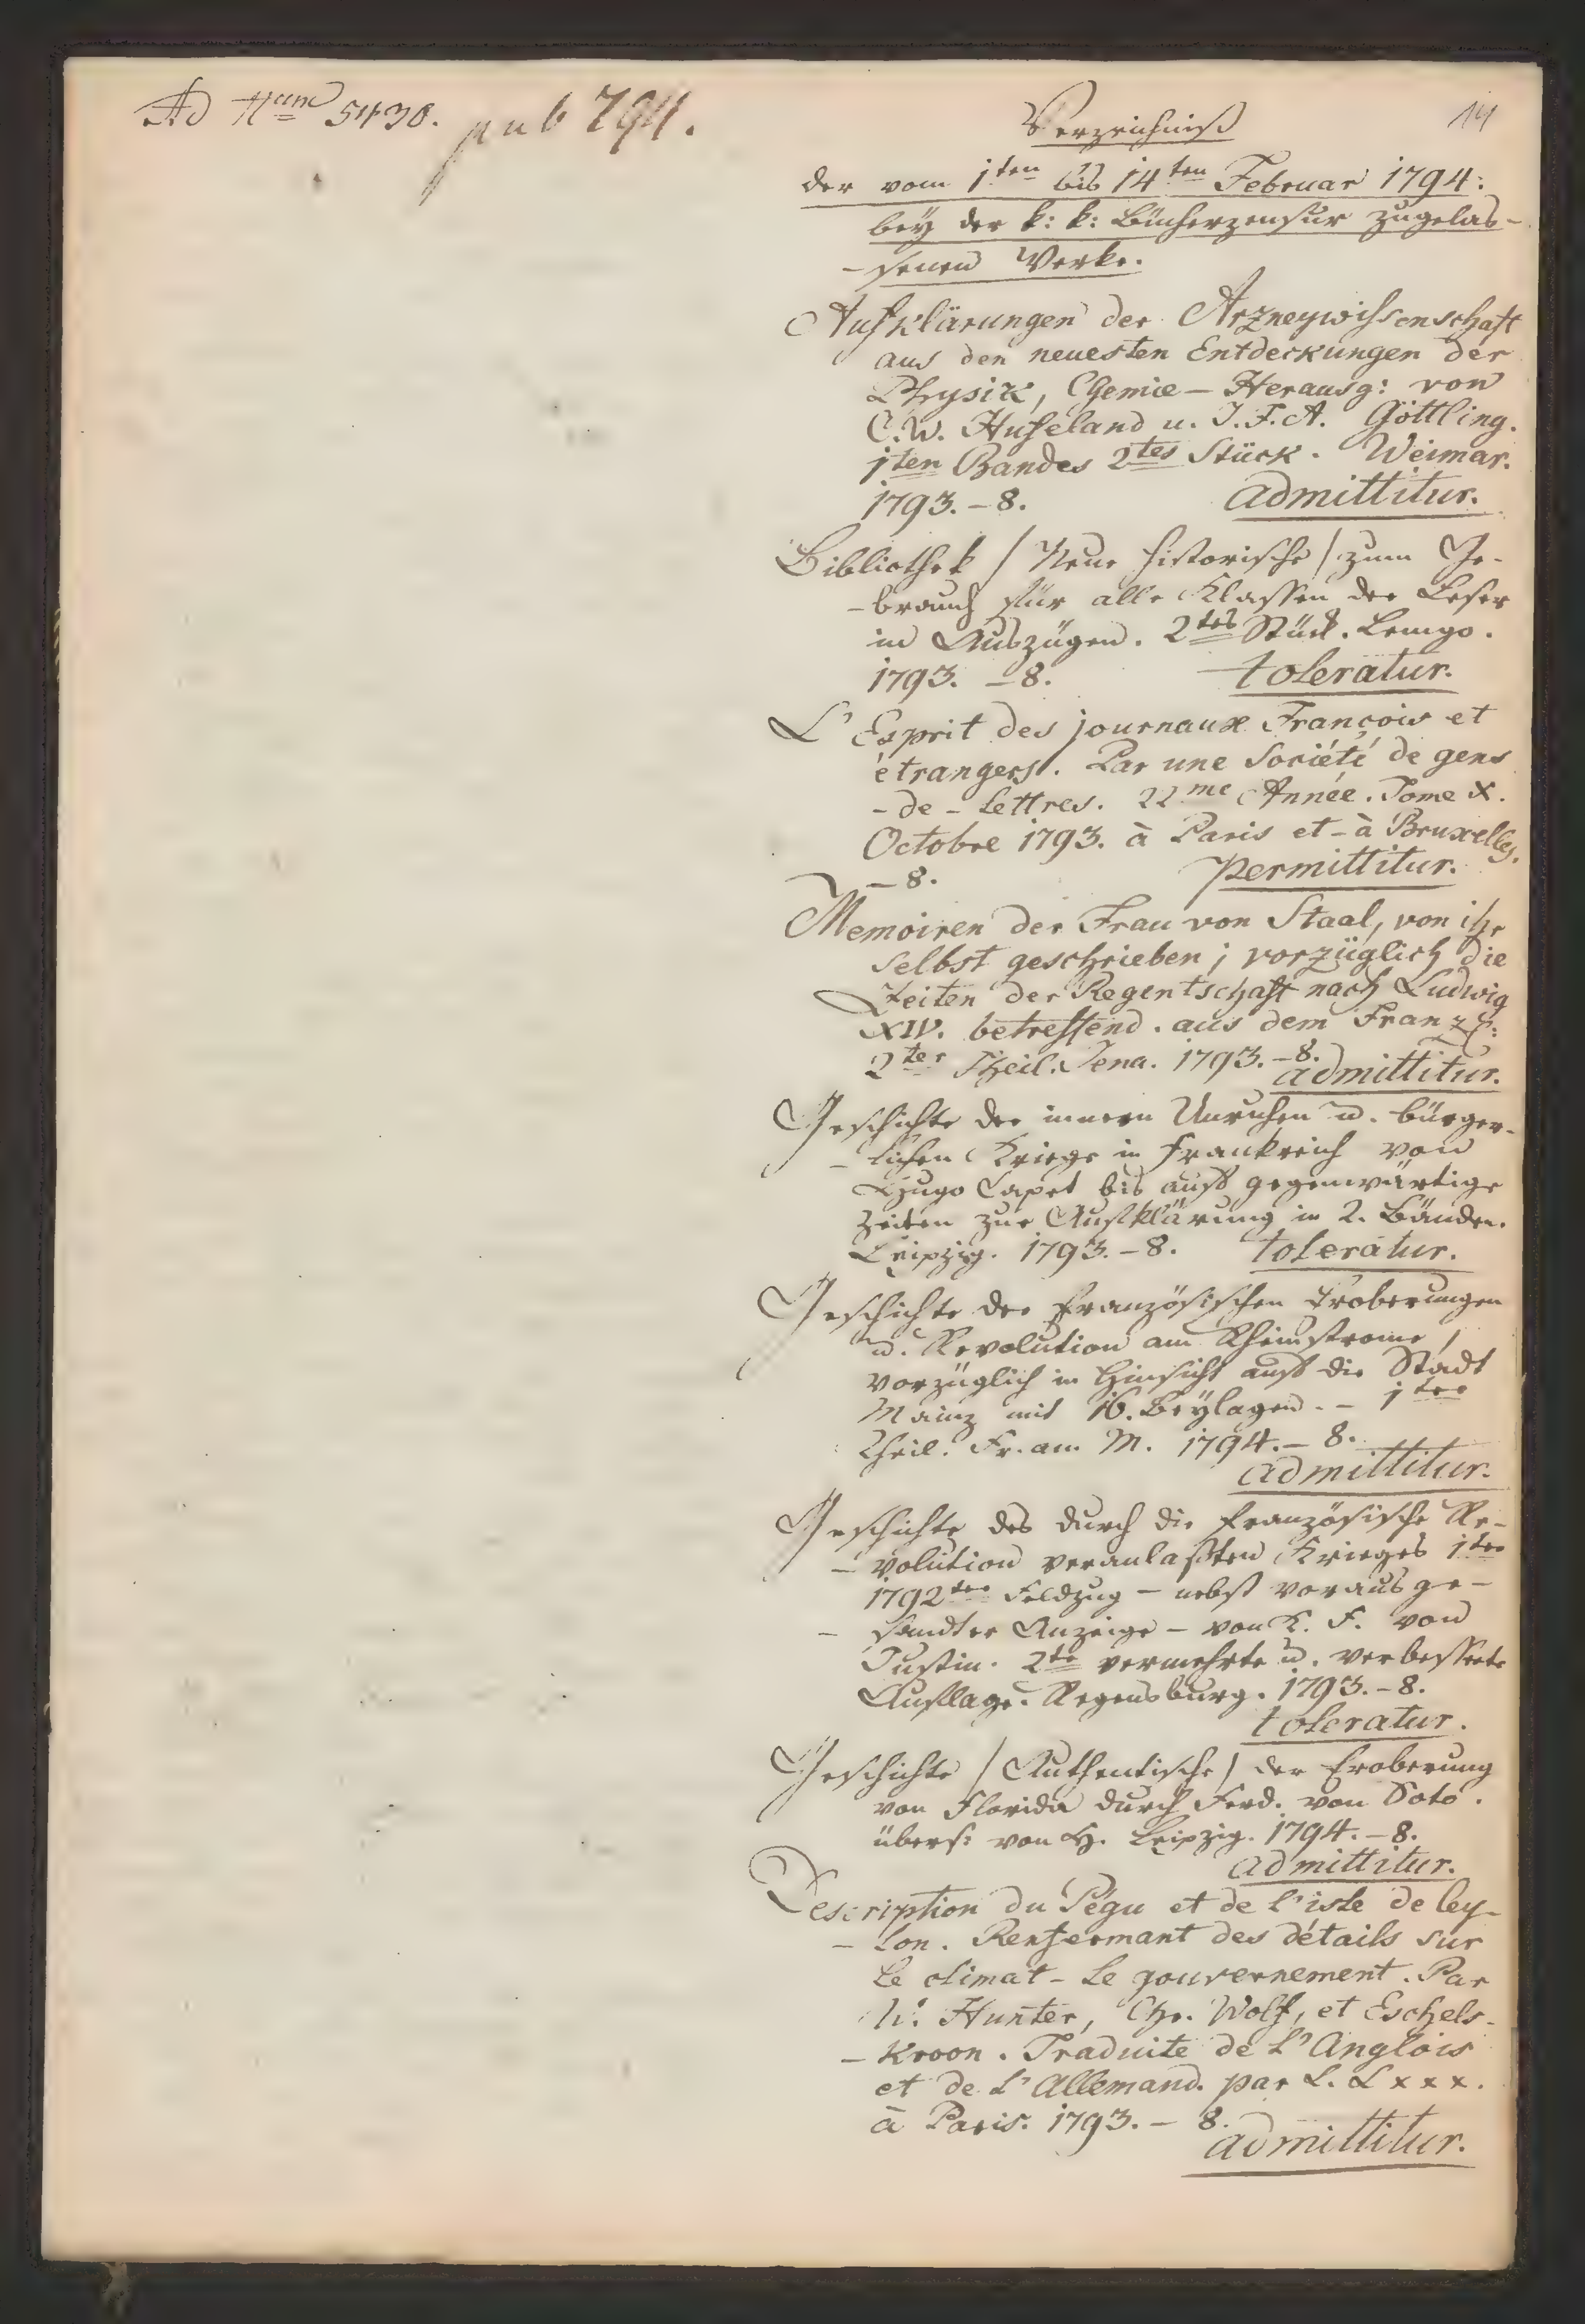 Ad Num 5430. pub 794.
14
Verzeichniß
der vom 1ten bis 14ten Februar 1794:
bey der k: k: Bücherzensur zugelas-
-senen Werke.
Aufklärungen der Arzneywissenschaft
aus den neuesten Entdeckungen der
Physik, Chemie – Herausg: von
C. W. Hufeland u. J. F. A. Göttling.
1ten Bandes 2tes Stück. Weimar.
1793. – 8. admittitur.
Bibliothek / Neue historische / zum Ge-
-brauch für alle Klassen der Leser
in Auszügen. 2tes Stück. Lemgo.
1793. – 8. toleratur.
L'Esprit des journaux François et
étrangers. Par une Société de gens
-de-Lettres. 22me Année. Tome X.
Octobre 1793. à Paris et à Bruxelles.
– 8. permittitur.
Memoiren der Frau von Staal, von ihr
selbst geschrieben; vorzüglich die
Zeiten der Regentschaft nach Ludwig
XIV. betreffend. aus dem Franz:
2ter Theil. Jena. 1793. – 8.
admittitur.
Geschichte der innern Unruhen u. bürger-
-lichen Kriege in Frankreich von
Hugo Capet bis auf gegenwärtige
Zeiten zur Aufklärung in 2. Bänden.
Leipzig. 1793. – 8. toleratur.
Geschichte der französischen Eroberungen
u. Revolution am Rheinstrome,
vorzüglich in Hinsicht auf die Stadt
Mainz mit 16. Beylagen. – 1ter
Theil. Fr. am M. 1794. – 8.
admittitur.
Geschichte des durch die französische Re-
-volution veranlaßten Krieges 1ter
1792ter Feldzug – nebst voraus ge-
-sandter Anzeige – von K. F. von
Justin. 2te vermehrte u. verbesserte
Auflage. Regensburg. 1793. – 8.
toleratur.
Geschichte / Authentische / der Eroberung
von Florida durch Ferd. von Soto.
übers: von H. Leipzig. 1794. – 8.
admittitur.
Description du Pégu et de l'isle de Cey-
-lon. Renfermant des détails sur
le climat – le gouvernement. Par
W. Hunter, Chr. Wolf, et Eschels-
-kroon. Traduite de L'Anglois
et de L'Allemand. par L. L x x x.
à Paris. 1793. – 8.
admittitur.